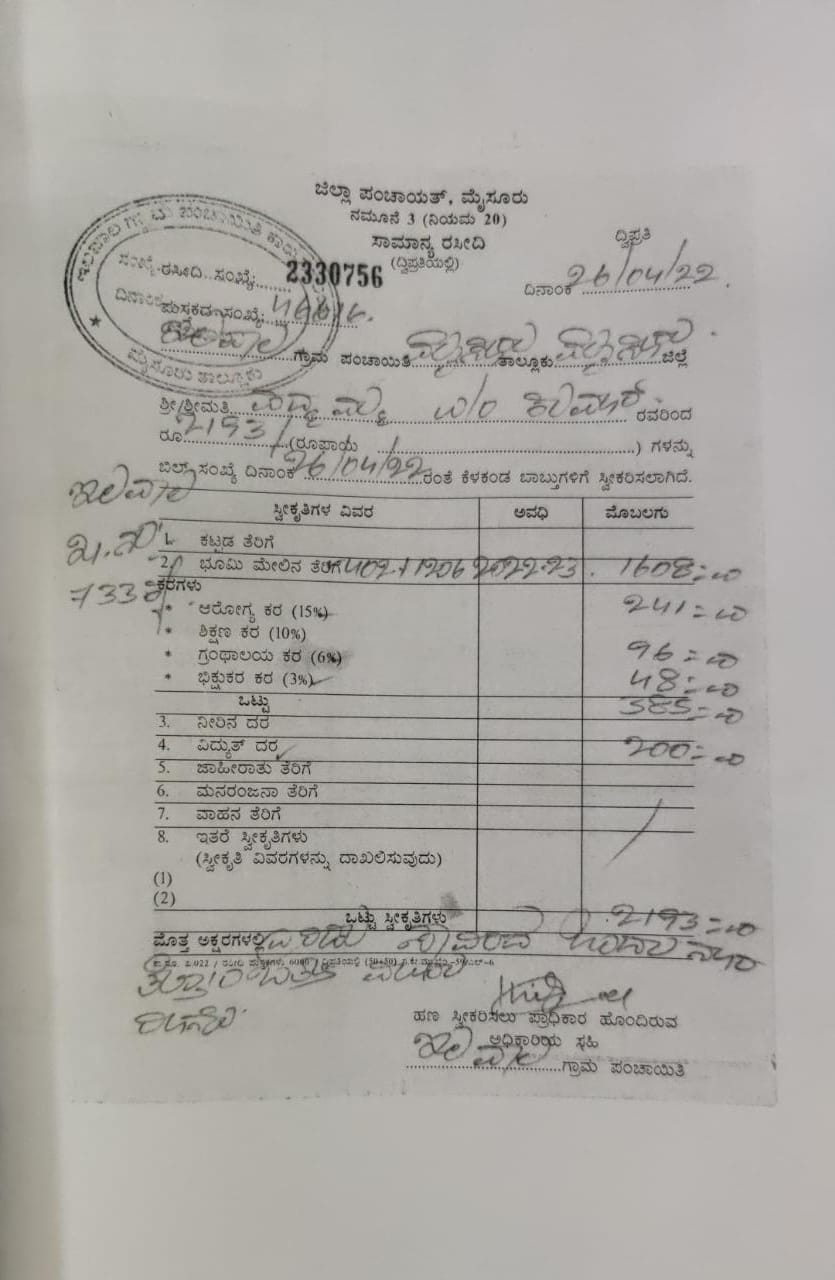 ಜಿಲ್ಲಾ ಪಂಚಾಯತ್, ಮೈಸೂರು
ನಮೂನೆ 3 (ನಿಯಮ 20)
ಸಾಮಾನ್ಯ ರಸೀದಿ
ದ್ವಿಪ್ರತಿ
(ದ್ವಿಪ್ರತಿಯಲ್ಲಿ)
ರಸೀದಿ ಸಂಖ್ಯೆ: 2330756
ದಿನಾಂಕ 26/04/22
ಪುಸ್ತಕದ ಸಂಖ್ಯೆ:
ಗ್ರಾಮ ಪಂಚಾಯಿತಿ ಮೈಸೂರು ತಾಲ್ಲೂಕು ಮೈಸೂರು ಜಿಲ್ಲೆ
ಮೈಸೂರು ತಾಲ್ಲೂಕು
ಶ್ರೀ/ಶ್ರೀಮತಿ w/o ಕುಮಾರ್ ರವರಿಂದ
ರೂ. 2193/- (ರೂಪಾಯಿ ) ಗಳನ್ನು
ಬಿಲ್ ಸಂಖ್ಯೆ ದಿನಾಂಕ 26/04/22 ರಂತೆ ಕೆಳಕಂಡ ಬಾಬ್ತುಗಳಿಗೆ ಸ್ವೀಕರಿಸಲಾಗಿದೆ.
ಇಲವಾಲ
ಸ್ವೀಕೃತಿಗಳ ವಿವರ ಅವಧಿ ಮೊಬಲಗು
1. ಕಟ್ಟಡ ತೆರಿಗೆ
2. ಭೂಮಿ ಮೇಲಿನ ತೆರಿಗೆ 402+1206 2022-23. 1608=00
ಕರಗಳು
* ಆರೋಗ್ಯ ಕರ (15%) 241=00
* ಶಿಕ್ಷಣ ಕರ (10%)
* ಗ್ರಂಥಾಲಯ ಕರ (6%) 96=00
* ಭಿಕ್ಷುಕರ ಕರ (3%) 48=00
ಒಟ್ಟು 385=00
3. ನೀರಿನ ದರ
4. ವಿದ್ಯುತ್ ದರ 200=00
5. ಜಾಹೀರಾತು ತೆರಿಗೆ
6. ಮನರಂಜನಾ ತೆರಿಗೆ
7. ವಾಹನ ತೆರಿಗೆ
8. ಇತರೆ ಸ್ವೀಕೃತಿಗಳು
(ಸ್ವೀಕೃತಿ ವಿವರಗಳನ್ನು ದಾಖಲಿಸುವುದು)
(1)
(2)
ಒಟ್ಟು ಸ್ವೀಕೃತಿಗಳು 2193=00
ಮೊತ್ತ ಅಕ್ಷರಗಳಲ್ಲಿ ಎರಡು ಸಾವಿರದ ಒಂದುನೂರ
ಹಣ ಸ್ವೀಕರಿಸಲು ಪ್ರಾಧಿಕಾರ ಹೊಂದಿರುವ
ಅಧಿಕಾರಿಯ ಸಹಿ
ಇಲವಾಲ ಗ್ರಾಮ ಪಂಚಾಯಿತಿ